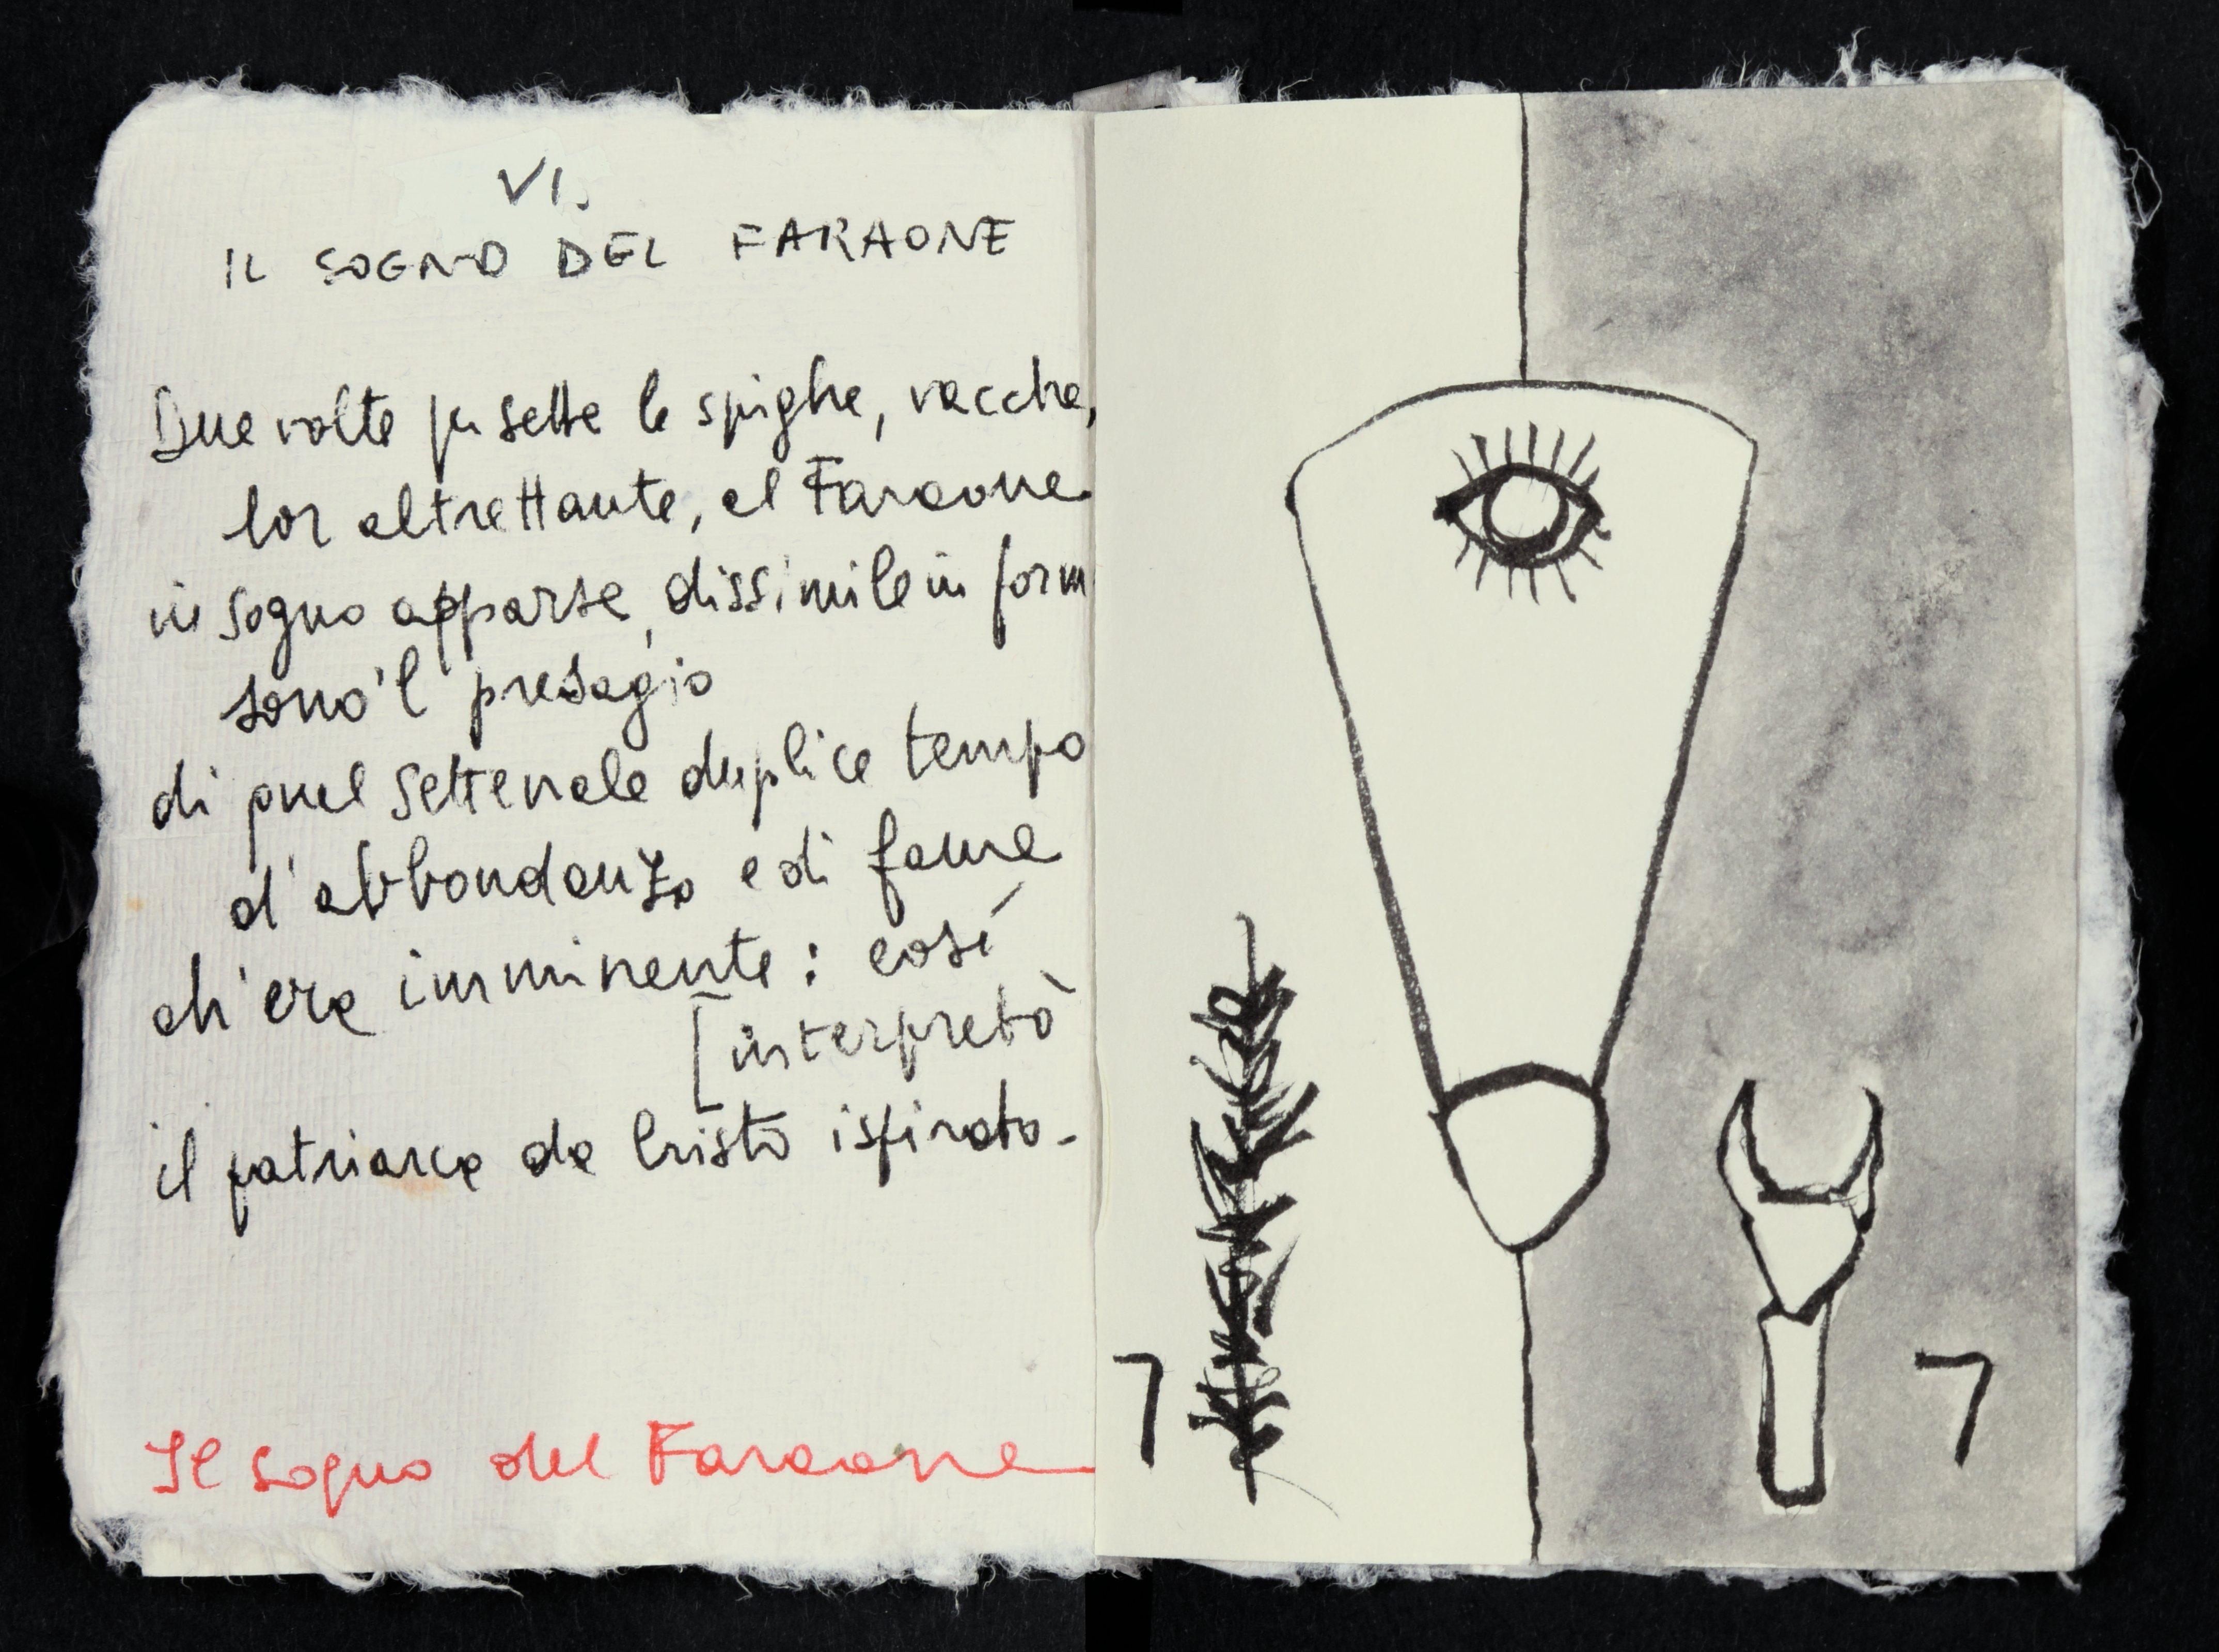 VI.
IL SOGNO DEL FARAONE
Due volte fu sette le spighe, vacche,
lor altrettante, al Faraone
in sogno apparse, dissimile in form
sono 'l presagio
di quel settenale duplice tempo
d'abbondanza e di fame
ch'era imminente: così
[interpretò
il patriarca da Cristo ispirato.
Il sogno del Faraone
7
7